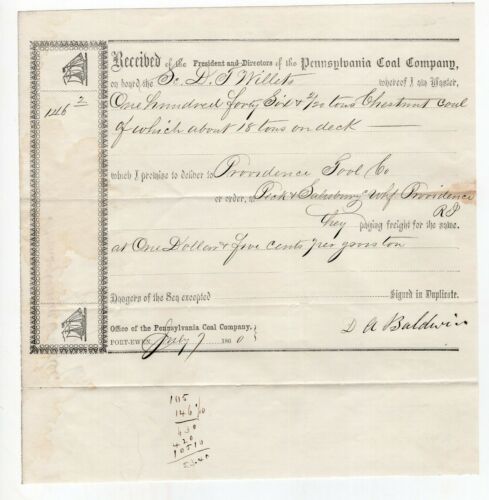 Received of the President and Directors of the Pennsylvania Coal Company,
on board the Sc. D. T Willets whereof I am Master,
146 2
One hundred forty Six & 2/20 tons Chestnut coal
of which about 18 tons on deck —
which I promise to deliver to Providence Tool Co
or order, at Peck & Salsbury Whf Providence
RI
They paying freight for the same.
at One Dollar & five cents per gross ton
Dangers of the Sea excepted Signed in Duplicate.
Office of the Pennsylvania Coal Company,
PORT-EWEN, July 7 186
D A Baldwin
105
146
630
420